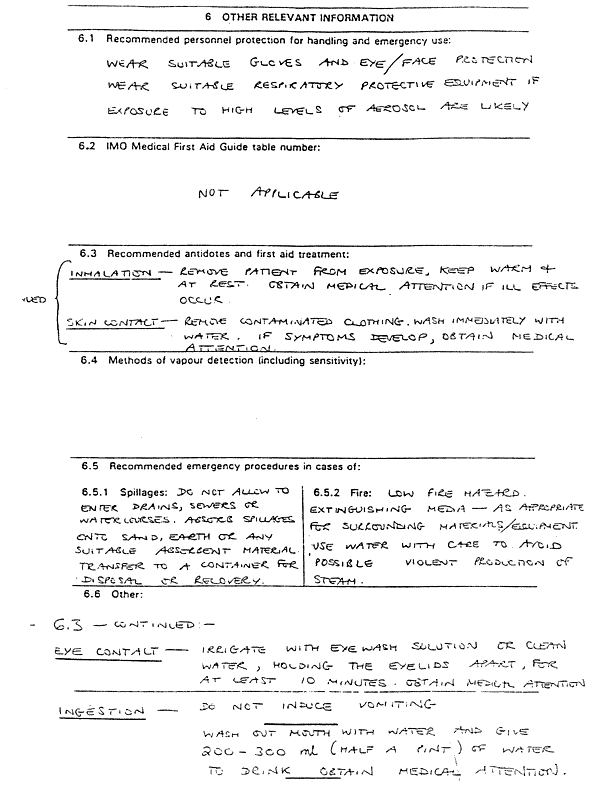 6 OTHER RELEVANT INFORMATION
6.1 Recommended personnel protection for handling and emergency use:
WEAR SUITABLE GLOVES AND EYE/FACE PROTECTION
WEAR SUITABLE RESPIRATORY PROTECTIVE EQUIPMENT IF
EXPOSURE TO HIGH LEVELS OF AEROSOL ARE LIKELY
6.2 IMO Medical First Aid Guide table number:
NOT APPLICABLE
6.3 Recommended antidotes and first aid treatment:
INHALATION — REMOVE PATIENT FROM EXPOSURE, KEEP WARM +
AT REST. OBTAIN MEDICAL ATTENTION IF ILL EFFECTS
OCCUR.
SKIN CONTACT — REMOVE CONTAMINATED CLOTHING. WASH IMMEDIATELY WITH
WATER. IF SYMPTOMS DEVELOP, OBTAIN MEDICAL
ATTENTION.
6.4 Methods of vapour detection (including sensitivity):
6.5 Recommended emergency procedures in cases of:
6.5.1 Spillages: DO NOT ALLOW TO
ENTER DRAINS, SEWERS OR
WATERCOURSES. ABSORB SPILLAGES
ONTO SAND, EARTH OR ANY
SUITABLE ABSORBENT MATERIAL
TRANSFER TO A CONTAINER FOR
DISPOSAL OR RECOVERY.
6.5.2 Fire: LOW FIRE HAZARD.
EXTINGUISHING MEDIA — AS APPROPRIATE
FOR SURROUNDING MATERIALS/EQUIPMENT
USE WATER WITH CARE TO AVOID
POSSIBLE VIOLENT PRODUCTION OF
STEAM.
6.6 Other:
- 6.3 — CONTINUED:-
EYE CONTACT — IRRIGATE WITH EYEWASH SOLUTION OR CLEAN
WATER, HOLDING THE EYELIDS APART, FOR
AT LEAST 10 MINUTES. OBTAIN MEDICAL ATTENTION
INGESTION — DO NOT INDUCE VOMITING
WASH OUT MOUTH WITH WATER AND GIVE
200-300 ml (HALF A PINT) OF WATER
TO DRINK OBTAIN MEDICAL ATTENTION.